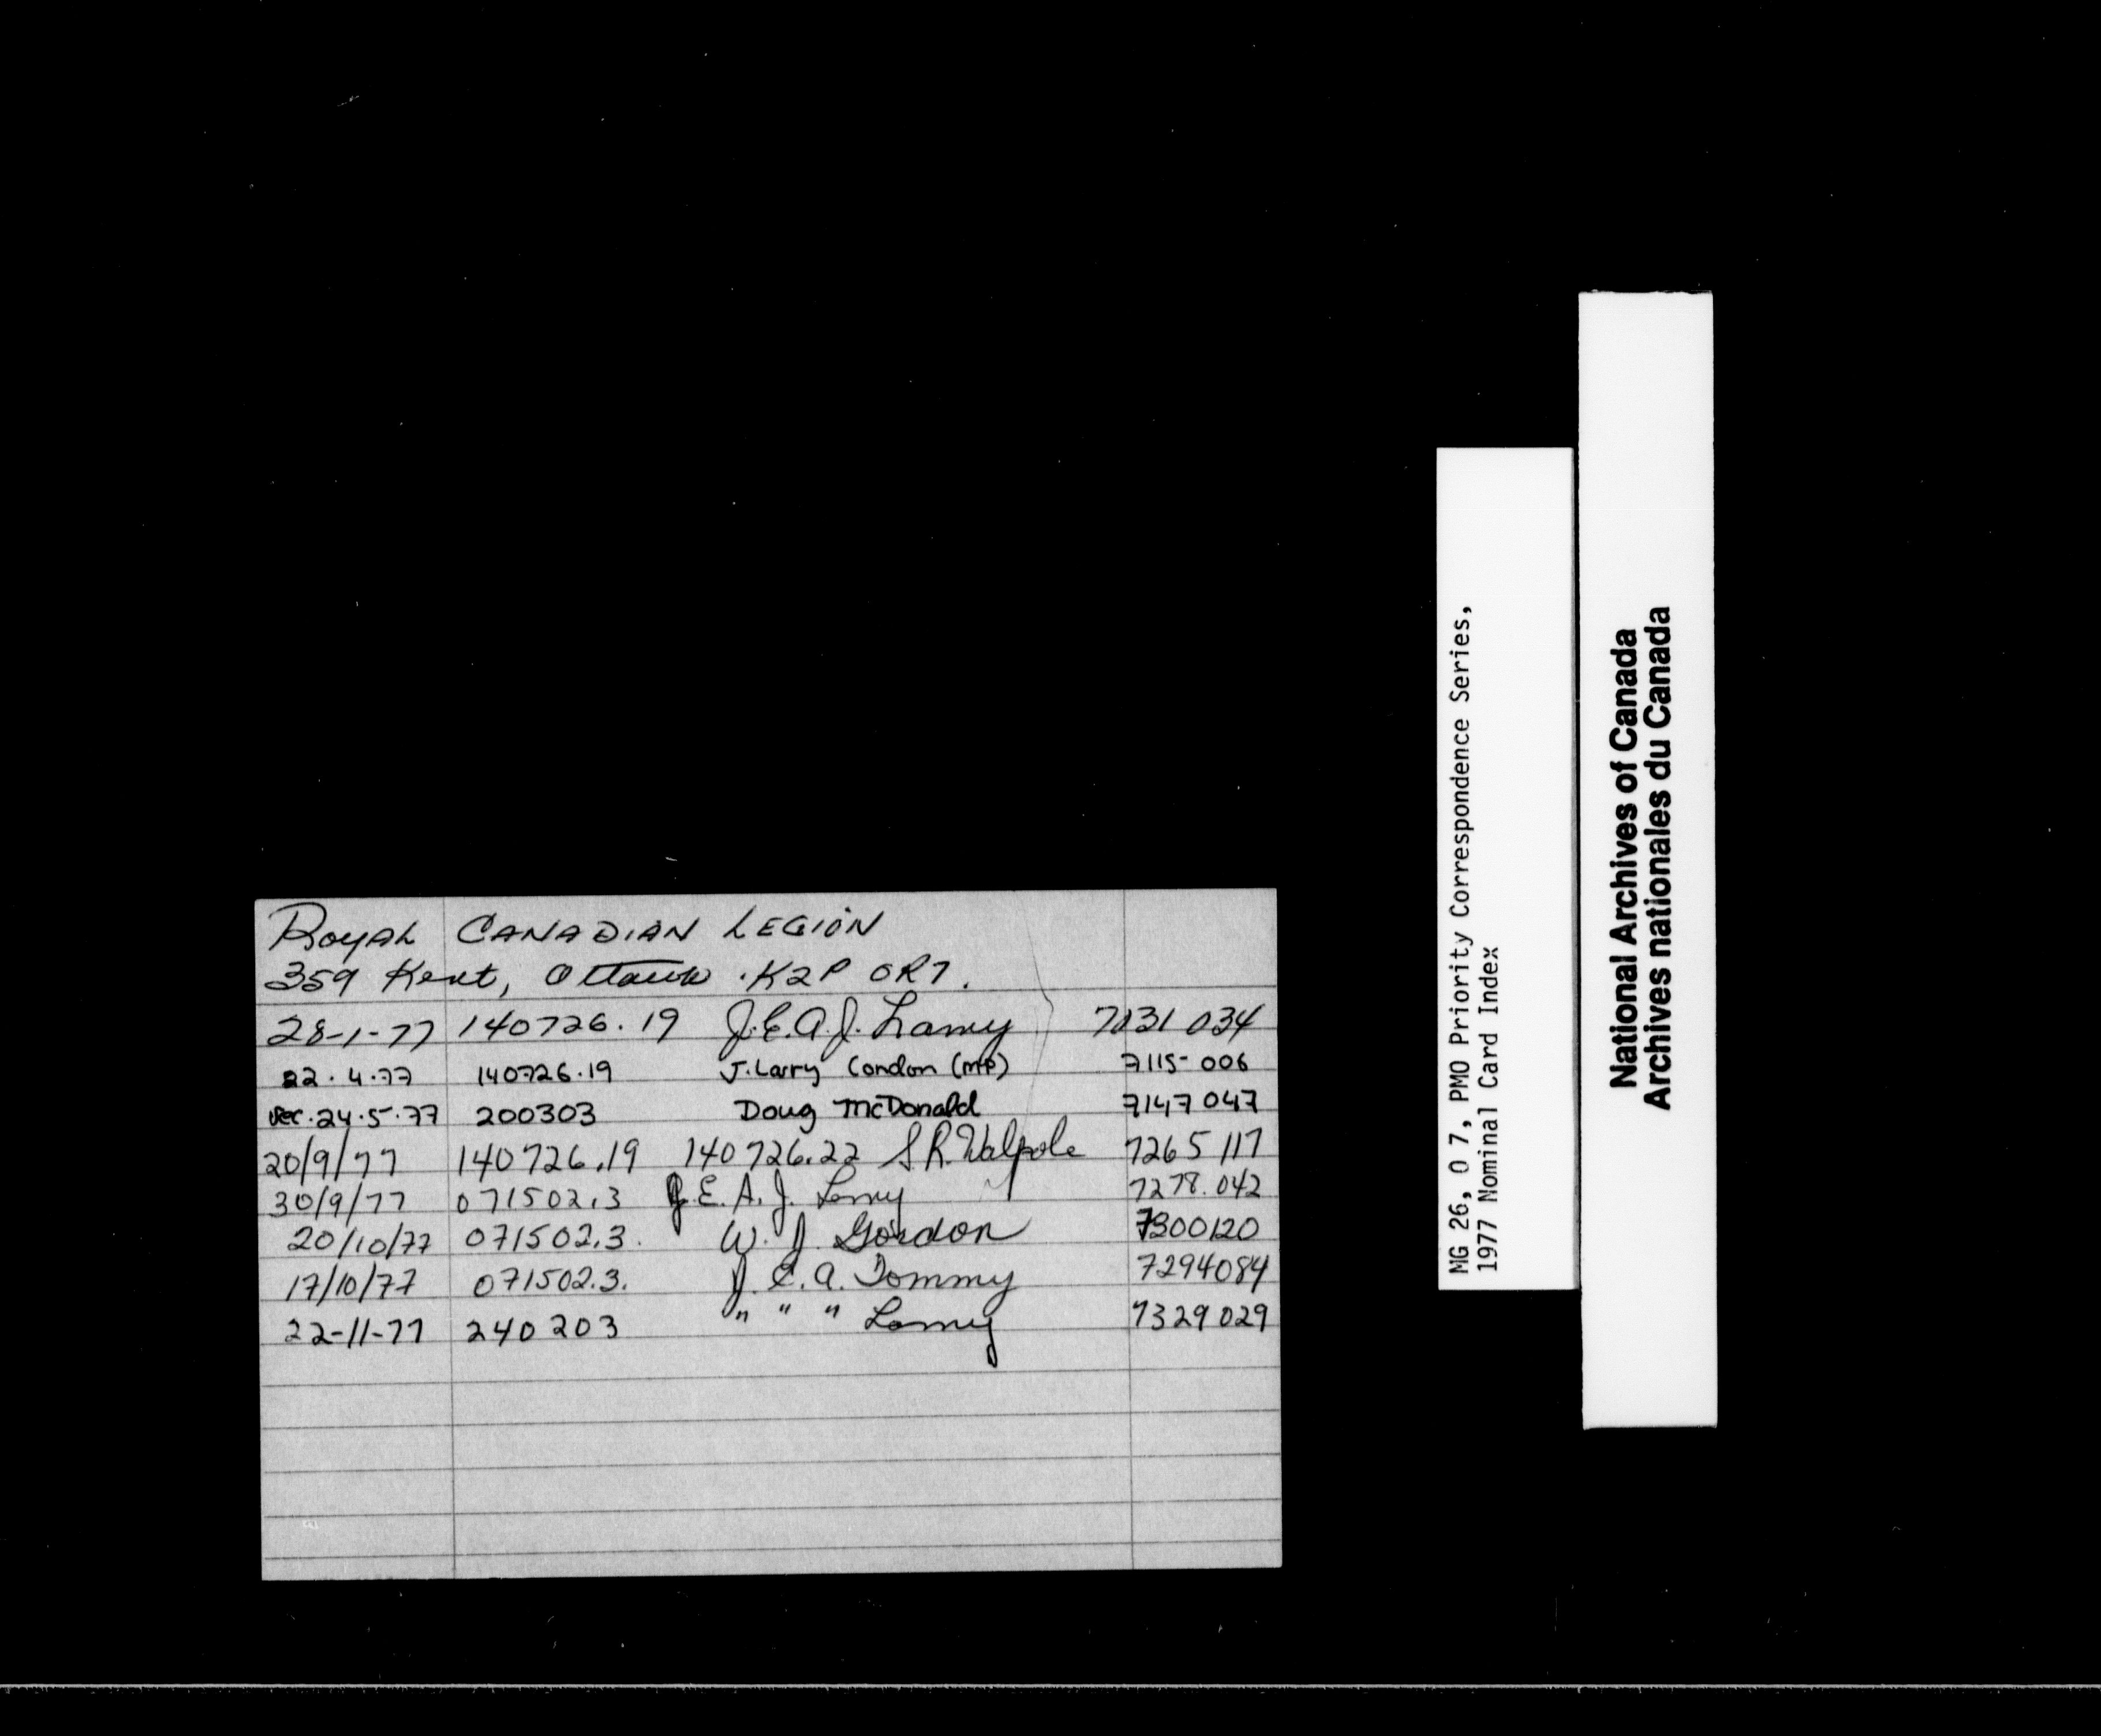 ROYAL CANADIAN LEGION
359 Kent, Ottawa . K2P 0R7.
28-1-77 140726.19 J.E.A.J. Lamy 7031 034
22.4.77 140726.19 J. Larry Condon (MP) 7115-006
rec. 24.5.77 200303 Doug McDonald 7147 047
20/9/77 140726.19 140726.22 S R. Walpole 7265 117
30/9/77 071502.3 J.E.A.J. Lamy 7278.042
20/10/77 071502.3. W. J. Gordon 7300120
17/10/77 071502.3. J. E. A. Tommy 7294084
22-11-77 240203 " " " Lamy 7329 029
MG 26, O 7, PMO Priority Correspondence Series,
1977 Nominal Card Index
National Archives of Canada
Archives nationales du Canada